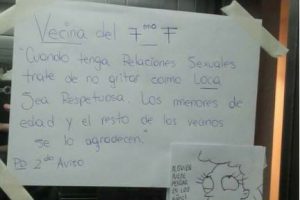 Vecina del 7mo F
"Cuando tenga Relaciones Sexuales
trate de no gritar como Loca
Sea Respetuosa. Los menores de
edad y el resto de los vecinos
se lo agradecen."
PD 2do Aviso
ALGUIEN
PUEDE
PENSAR
EN LOS